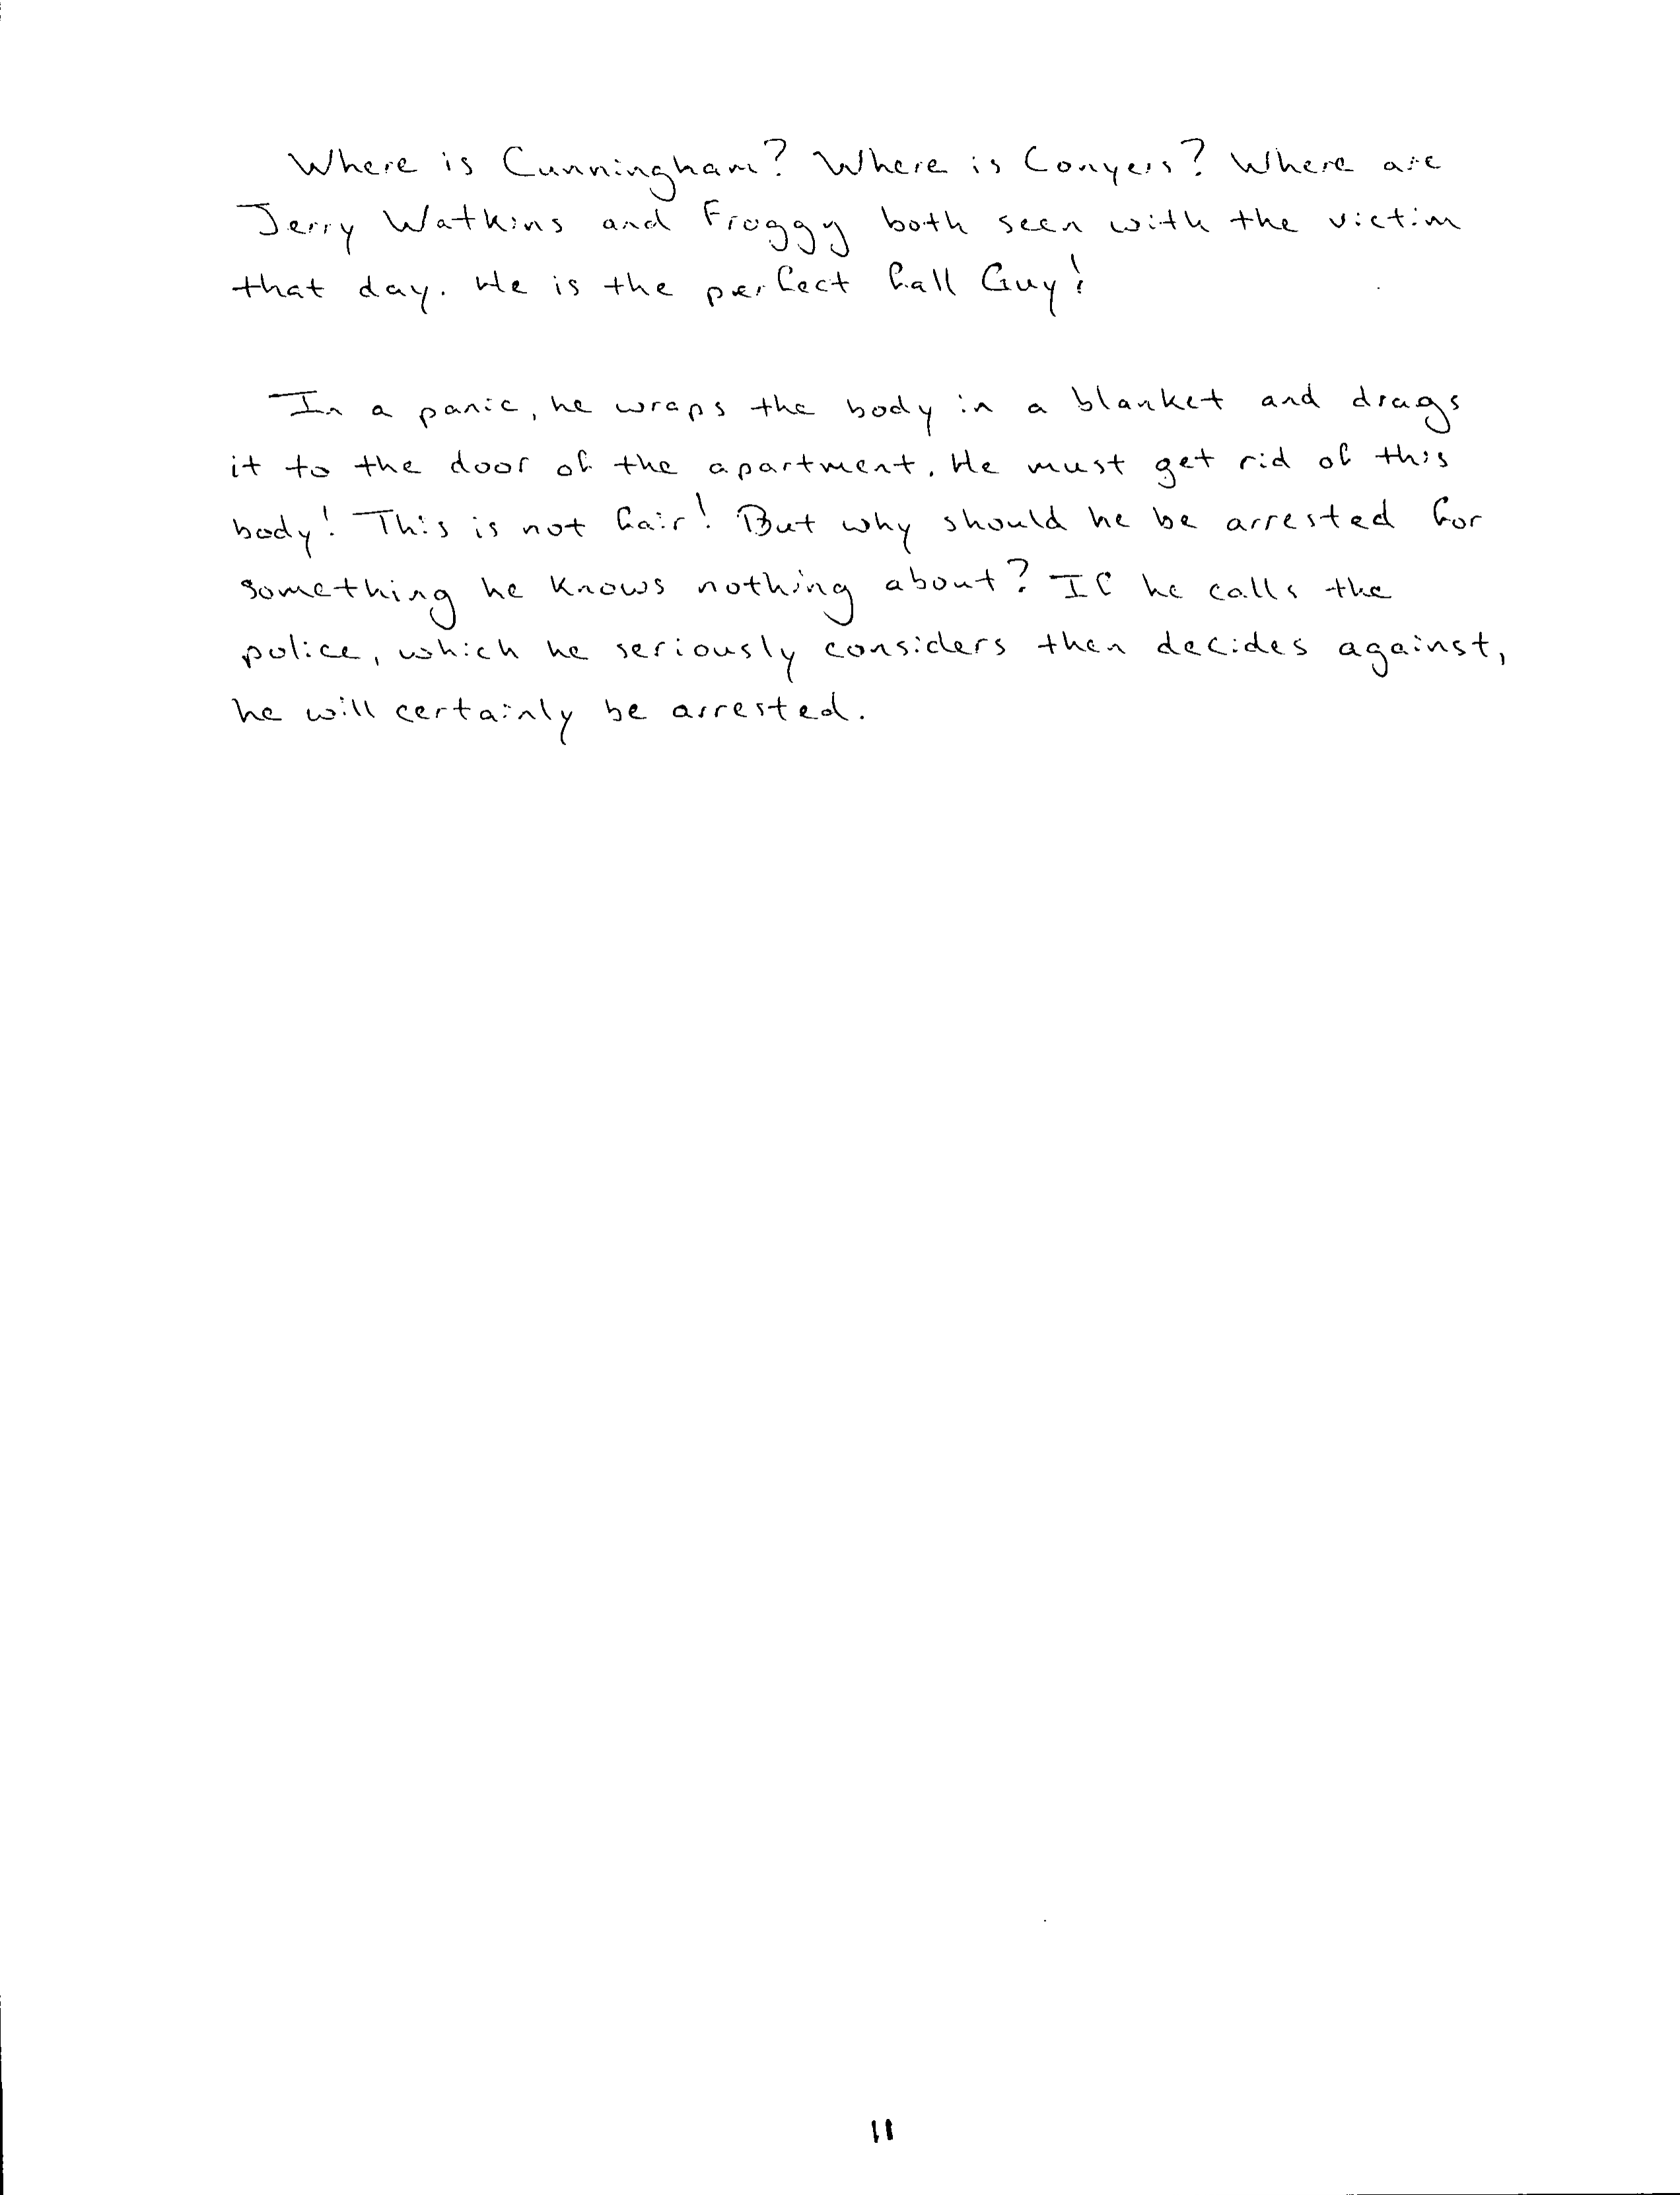 Where is Cunningham? Where is Conyers? Where are
Jerry Watkins and Froggy both seen with the victim
that day. He is the perfect fall Guy!
In a panic, he wraps the body in a blanket and drags
it to the door of the apartment. He must get rid of this
body! This is not fair! But why should he be arrested for
something he knows nothing about? If he calls the
police, which he seriously considers then decides against,
he will certainly be arrested.
11